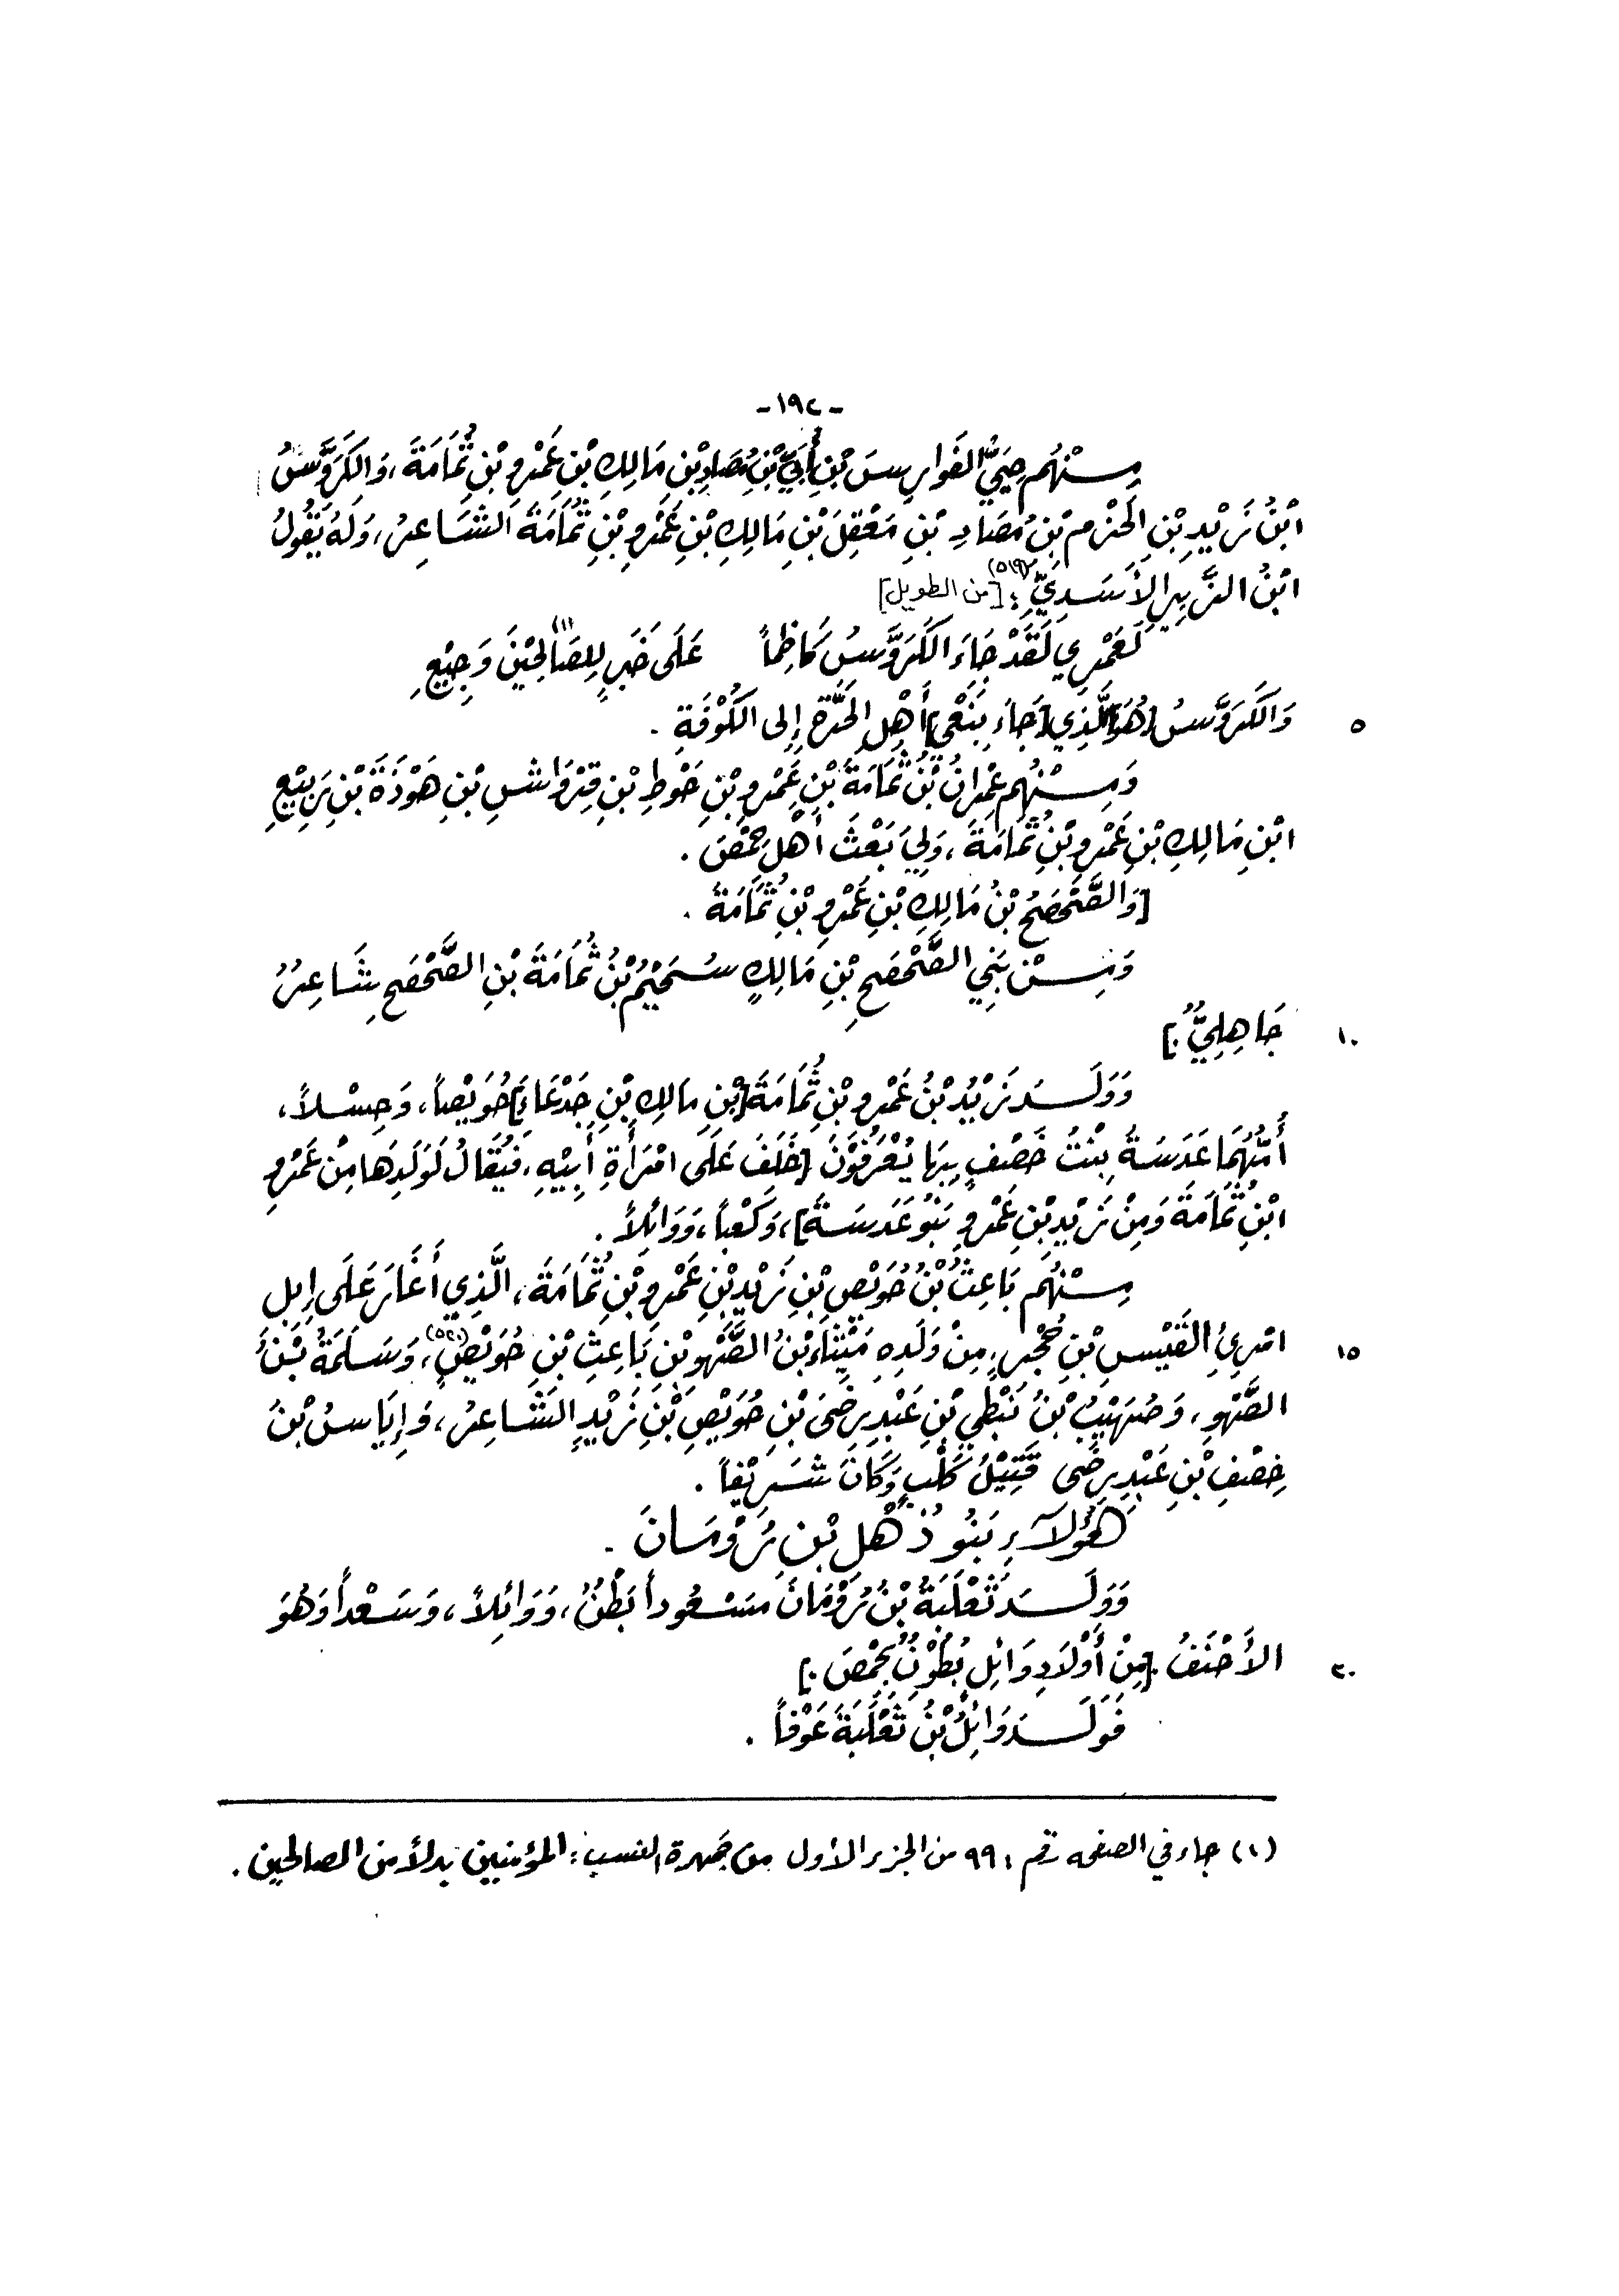 -١٩٢-
مِنْهُم حِيَيُّ الفَوَارِسَ بْنِ أُبَيِّ بْنِ مُصَادِ بْنِ مَالِكِ بْنِ عَمْرِو بْنِ ثُمَامَةَ، وَالكَرَوَّسُ
ابْنُ زَيْدِ بْنِ الحَزْمِ بْنِ مُصَادِ بْنِ مَعْقِلَ بْنِ مَالِكِ بْنِ عَمْرِو بْنِ ثُمَامَةَ الشَّاعِرُ، وَلَهُ يَقُولُ
ابْنُ الزَّبِيرِ الأَسَدِيِّ(٥١٩): [من الطويل]
لَعَمْرِي لَقَدْ جَاءَ الكَرَوَّسُ كَاظِماً عَلَى خَبَرٍ لِلصَّالِحِيْنَ(١) وَجِيْعِ
٥ وَالكَرَوَّسُ [هُوَ] الَّذِي [جَاءَ بِنَعْي] أَهْلِ الحَرَّةِ إِلى الكُوْفَةِ.
وَمِنْهُم عِمْرانُ بْنُ ثُمَامَةَ بْنِ عَمْرِو بْنِ خَوْطِ بْنِ قِرْوَاشِ بْنِ هَوْذَةَ بْنِ رَبِيْعِ
ابْنِ مَالِكِ بْنِ عَمْرِو بْنِ ثُمَامَةَ، وَلِيَ بَعْثَ أَهْلِ حِمْصَ.
[وَالصَّحْصَحُ بْنُ مَالِكِ بْنِ عَمْرِو بْنِ ثُمَامَةَ.
وَمِنْ بَنِي الصَّحْصَحِ بْنِ مَالِكٍ سُحَيْمُ بْنُ ثُمَامَةَ بْنِ الصَّحْصَحِ شَاعِرٌ
١٠ جَاهِلِيٌّ.]
وَوَلَدَ زَيْدُ بْنُ عَمْرِو بْنِ ثُمَامَةَ [بْنِ مَالِكِ بْنِ جَدْعَاءَ] حُوَيْصاً، وَحِسْلاً،
أُمُّهُمَا عَدَسَةُ بِنْتُ خَصْفٍ بِهَا يُعْرَفُوْنَ [خَلَفَ عَلَى امْرَأَةِ أَبِيْهِ، فَيُقَالُ لَوَلَدِهَا مِنْ عَمْرِو
ابْنِ ثُمَامَةَ وَمِنْ زَيْدِ بْنِ عَمْرِو بَنُو عَدَسَةَ]، وَكَعْباً، وَوَائِلاً.
مِنْهُم بَاعِثُ بْنُ حُوَيْصِ بْنِ زَيْدِ بْنِ عَمْرِو بْنِ ثُمَامَةَ، الَّذِي أَغَارَ عَلَى إِبِلِ
١٥ امْرِئِ القَيْسِ بْنِ حُجْرٍ، مِنْ وَلَدِهِ مَيْثَاءُ بْنُ الصَّهْوِ بْنِ بَاعِثِ بْنِ حُوَيْصٍ(٥٢٠)، وَسَلَمَةُ بْنُ
الصَّهْوِ، وَصُهَيْبُ بْنُ نَبْطِي بْنِ عَبْدِ رِضَى بْنِ حُوَيْصِ بْنِ زَيْدٍ الشَّاعِرُ، وَإِيَاسُ بْنُ
خِصْفِ بْنِ عَبْدِ رِضَى قَتِيْلُ كَلْبٍ وَكَانَ شَرِيْفاً.
هَؤُلَاءِ بَنُو ذُهْلِ بْنِ رُوْمَانَ.
وَوَلَدَ ثَعْلَبَةُ بْنُ رُوْمَانَ مَسْعُوداً بَطْنٌ، وَوَائِلاً، وَسَعْداً وَهُوَ
٢٠ الأَحْنَفُ. [مِنْ أَوْلَادِ وَائِلٍ بُطُوْنٌ بِحِمْصَ.]
فَوَلَدَ وَائِلُ بْنُ ثَعْلَبَةَ عَوْفاً.
(١) جاء في الصفحه رقم: ٩٩ من الجزء الأول من جمهرة النسب: المؤمنين بدلاً من الصالحين.